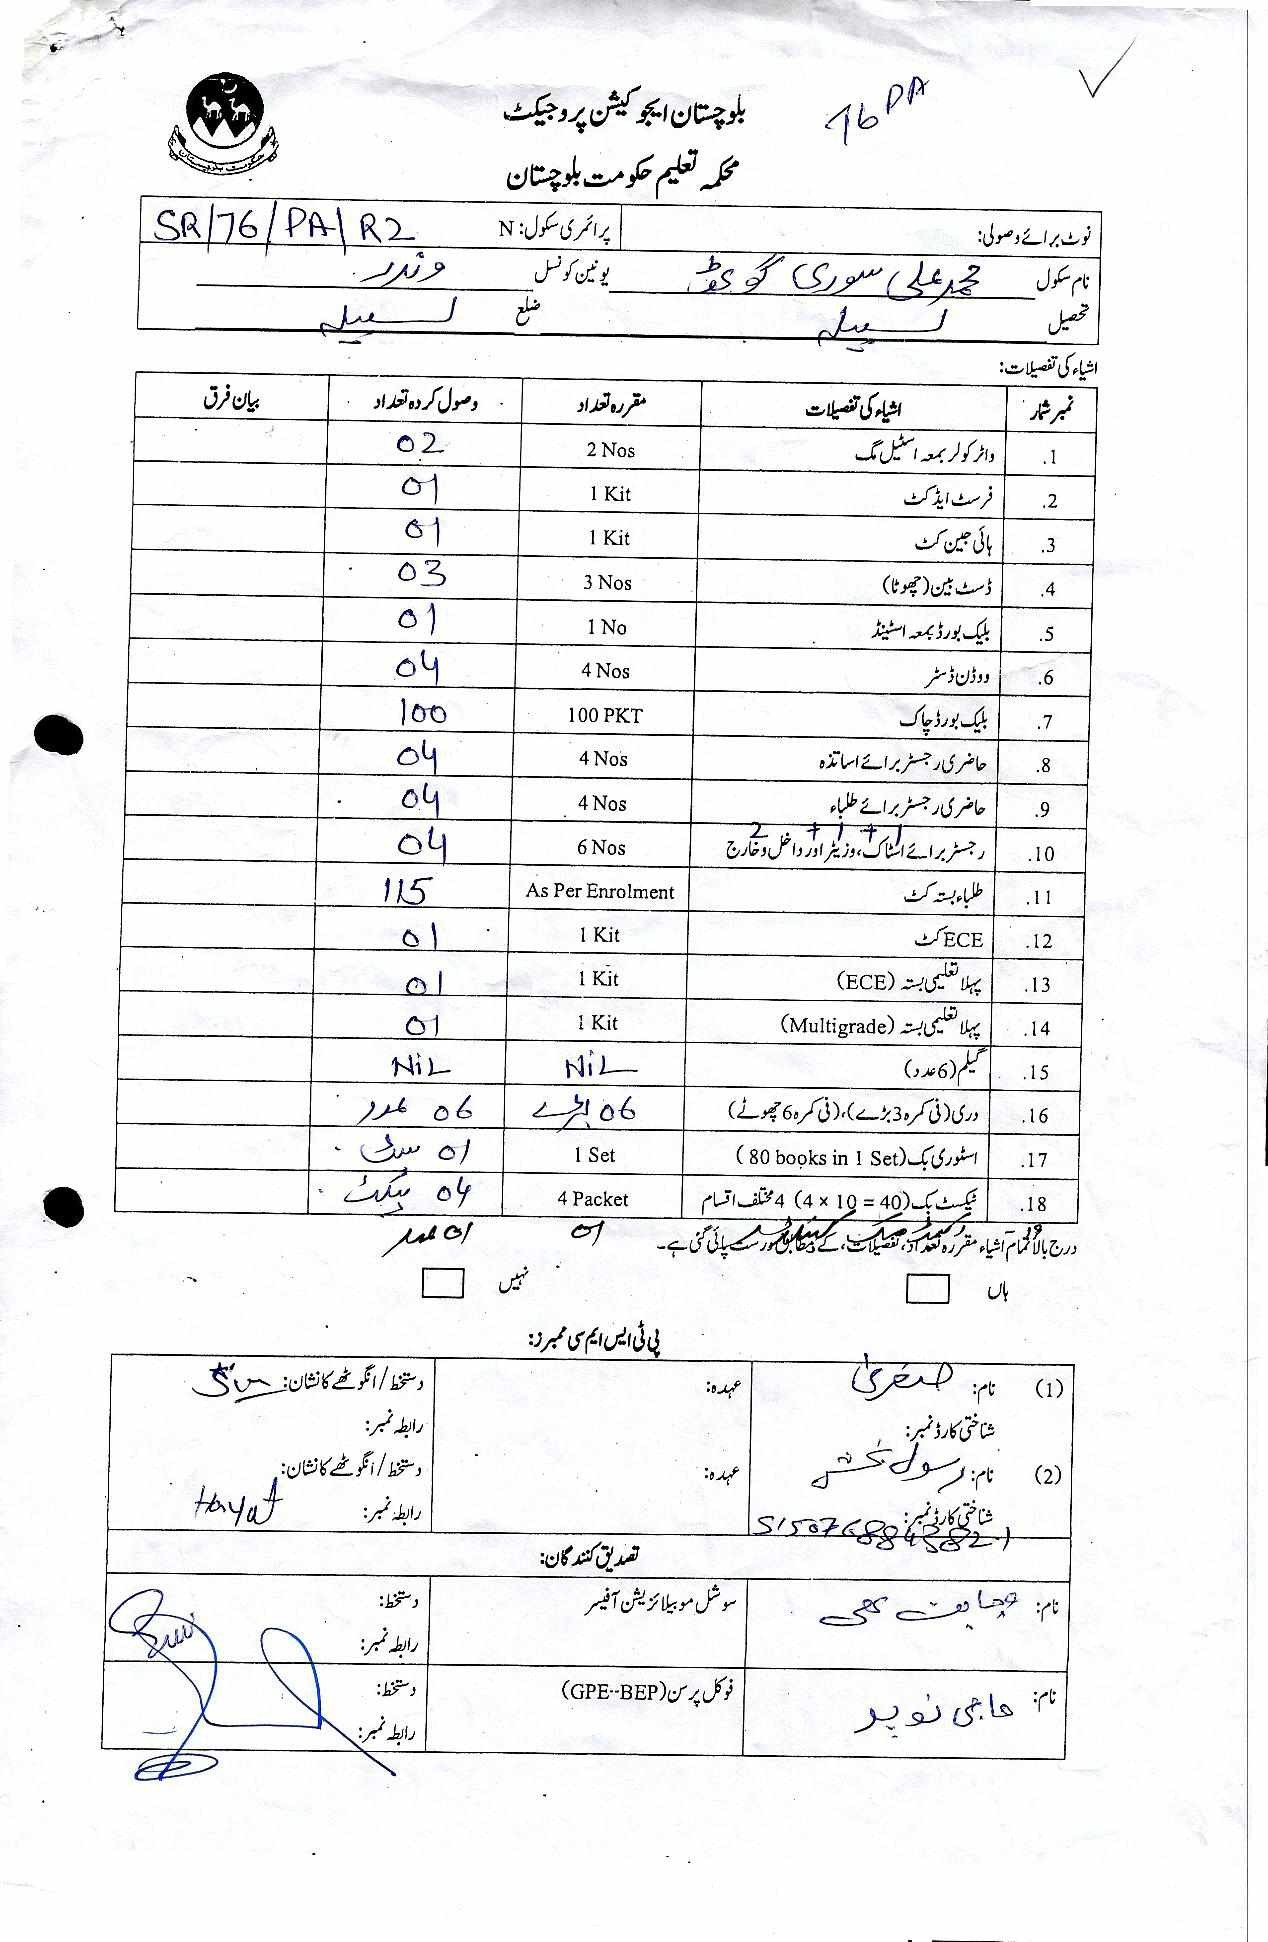 76 PA
بلوچستان ایجوکیشن پروجیکٹ
محکمہ تعلیم حکومت بلوچستان
نوٹ برائے وصولی: پرائمری سکول: N SR/76/PA/R2
نام سکول محمد علی سوری گوٹھ یونین کونسل وندر
تحصیل لسبیلہ ضلع لسبیلہ
اشیاء کی تفصیلات:
نمبر شمار اشیاء کی تفصیلات مقررہ تعداد وصول کردہ تعداد بیان فرق
1. واٹر کولر بمعہ اسٹیل مگ 2 Nos 02
2. فرسٹ ایڈ کٹ 1 Kit 01
3. ہائی جین کٹ 1 Kit 01
4. ڈسٹ بین (چھوٹا) 3 Nos 03
5. بلیک بورڈ بمعہ اسٹینڈ 1 No 01
6. ووڈن ڈسٹر 4 Nos 04
7. بلیک بورڈ چاک 100 PKT 100
8. حاضری رجسٹر برائے اساتذہ 4 Nos 04
9. حاضری رجسٹر برائے طلباء 4 Nos 04
2 + 1 + 1
10. رجسٹر برائے اسٹاک، وزیٹر اور داخل و خارج 6 Nos 04
11. طلباء بستہ کٹ As Per Enrolment 115
12. ECE کٹ 1 Kit 01
13. پہلا تعلیمی بستہ (ECE) 1 Kit 01
14. پہلا تعلیمی بستہ (Multigrade) 1 Kit 01
15. گیم (6 عدد) NiL NiL
16. دری (فی کمرہ 3 بڑے)، (فی کمرہ 6 چھوٹے) 06 بڑے 06 عدد
17. اسٹوری بک (80 books in 1 Set) 1 Set 01 سیٹ
18. ٹیکسٹ بک (4 × 10 = 40) 4 مختلف اقسام 4 Packet 04 پیکٹ
01 01 عدد
درج بالا تمام اشیاء مقررہ تعداد، تفصیلات، کے مطابق درست پائی گئی ہے۔
ہاں نہیں
پی ٹی ایس ایم سی ممبرز:
(1) نام: صغریٰ عہدہ: دستخط / انگوٹھے کا نشان:
شناختی کارڈ نمبر: رابطہ نمبر:
(2) نام: رسول بخش عہدہ: دستخط / انگوٹھے کا نشان:
شناختی کارڈ نمبر: رابطہ نمبر: Hayat
تصدیق کنندگان:
نام: سوشل موبیلائزیشن آفیسر دستخط:
رابطہ نمبر:
نام: حاجی نوید فوکل پرسن (GPE--BEP) دستخط:
رابطہ نمبر: